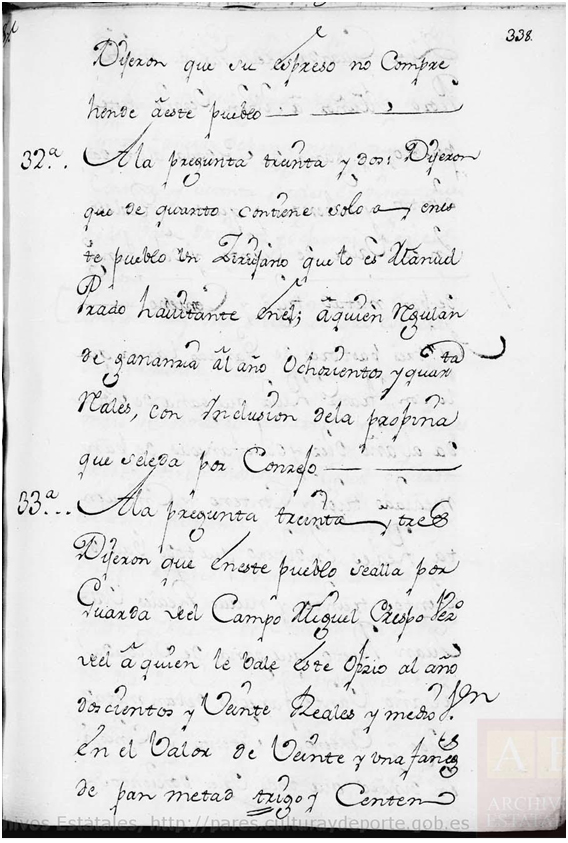 338.
Dijeron que su espreso no Compre
hende a este pueblo
32.a.. A la pregunta treinta y dos; Dijeron
que de quanto contiene solo ay en es
te pueblo un Zirujano que lo es Manuel
Prado havitante en el; a quien regulan
de ganancia al año Ochozientos y quarta
Rales, con Inclusion de la propina
que se le da por Conzejo
33.a... A la pregunta treinta y tres
Dijeron que en este pueblo se alla por
Guarda del Campo Miguel Crespo Vezo
del a quien le Vale este Ofizio al año
doscientos y Veinte Reales y medio Vn
en el Valor de Veinte y una fanegas
de pan metad trigo y Centen
ARCHIVOS
ESTATALES
Archivos Estatales, http://pares.culturaydeporte.gob.es